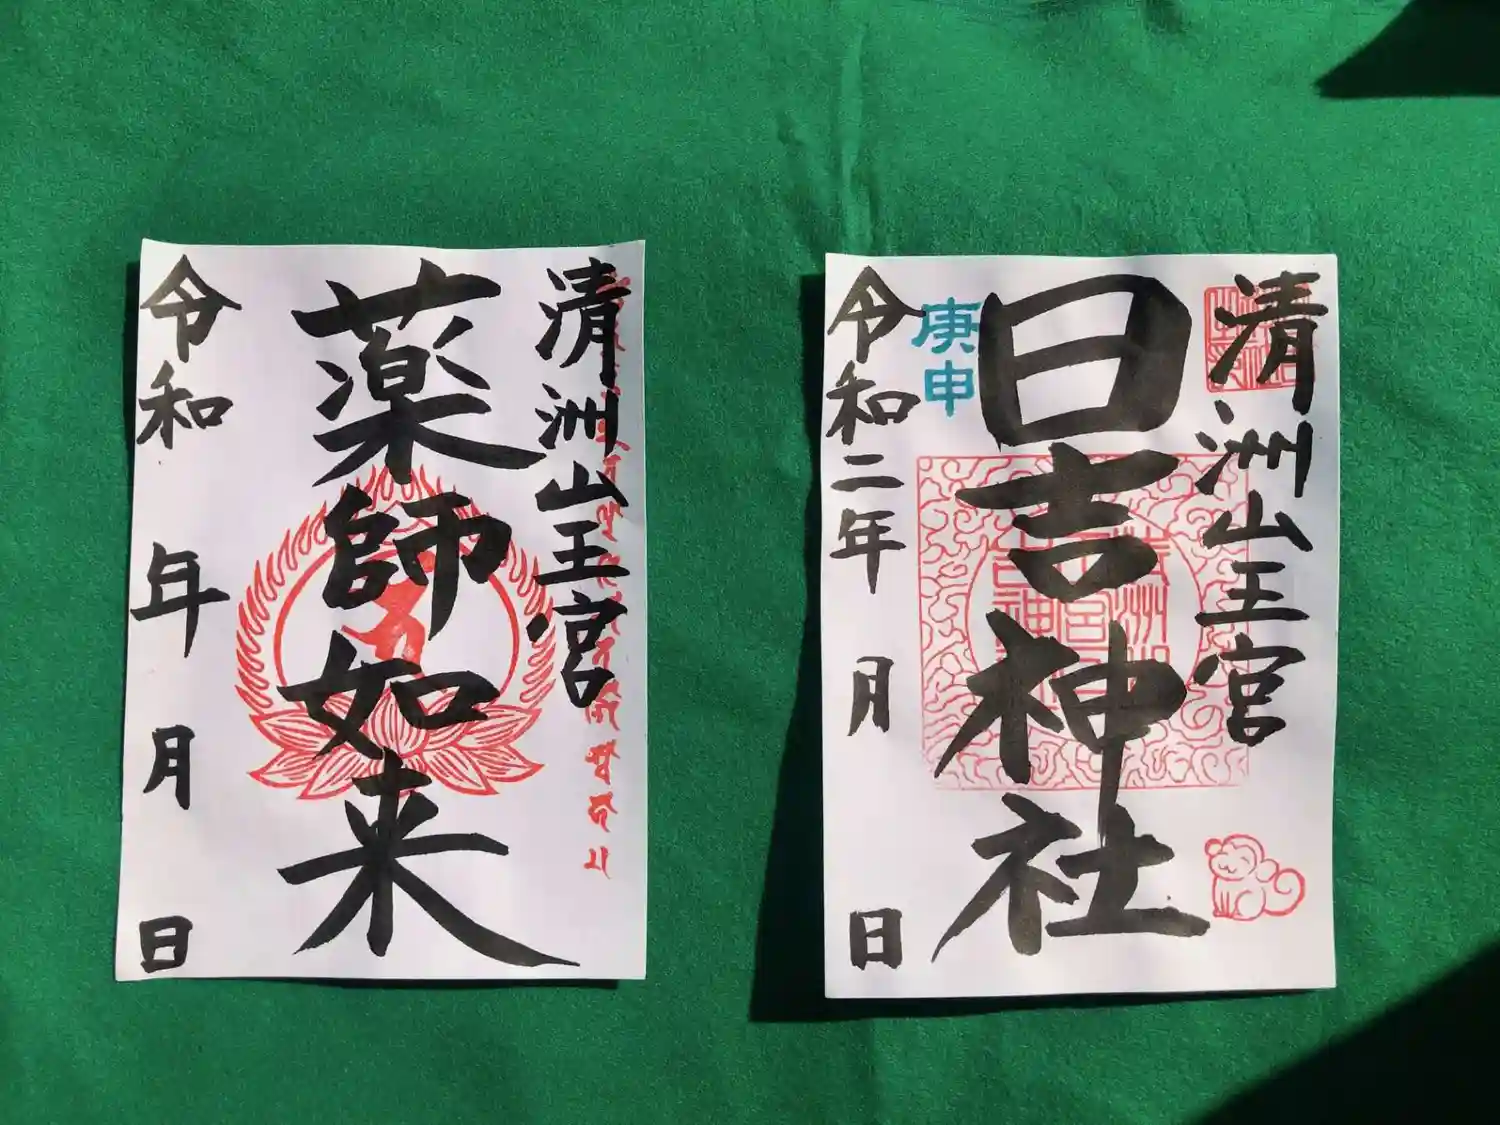 清洲山王宮
薬師如来
令和 年 月 日
清洲山王宮
日吉神社
庚申
令和二年 月 日